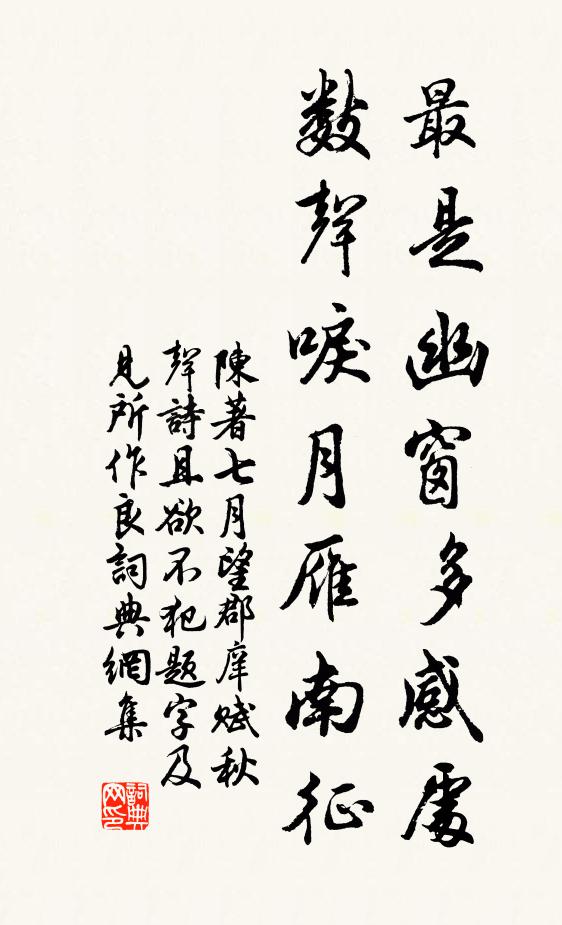 最是幽窗多感處
數聲唳月雁南征
陳著七月望郡庠賦秋
聲詩且欲不犯題字及
見所作良詞典網集
詞典网印